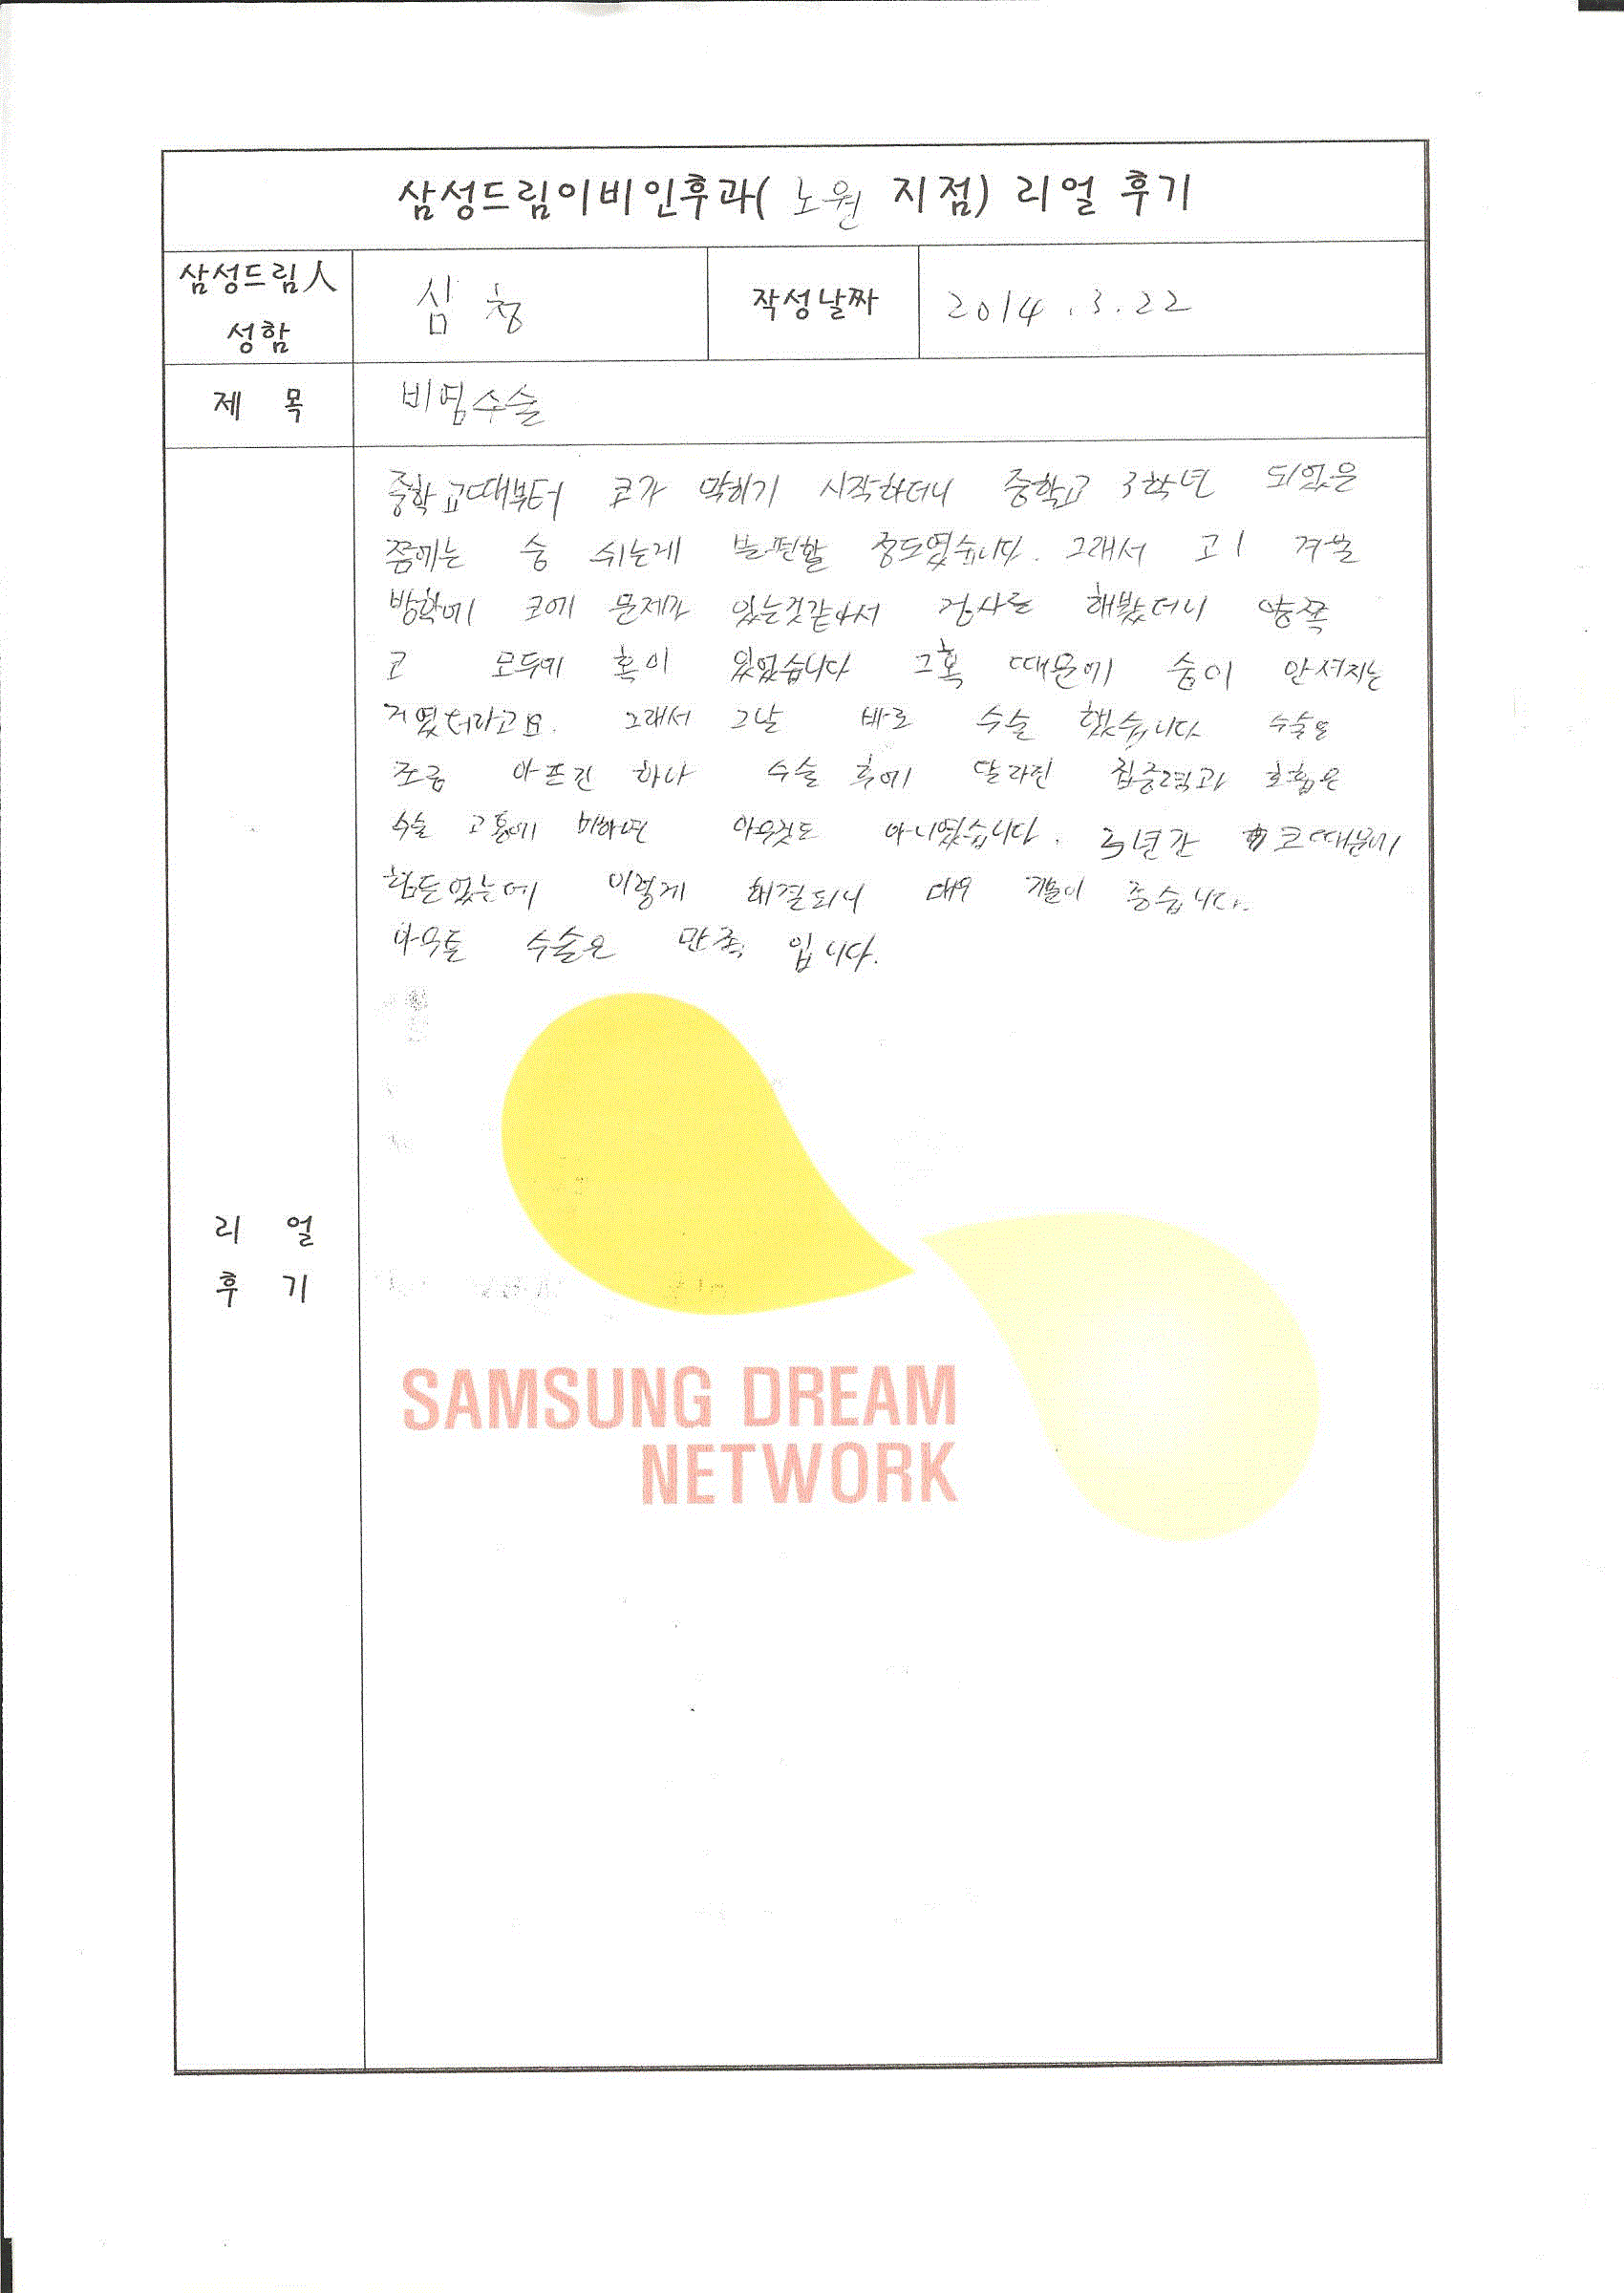 삼성드림이비인후과( 노원 지점) 리얼 후기
삼성드림人
성함
심청
작성날짜
2014.3.22
제 목
비염수술
중학교때부터 코가 막히기 시작하더니 중학교 3학년 되었을
쯤에는 숨 쉬는게 불편할 정도였습니다. 그래서 고1 겨울
방학에 코에 문제가 있는것같아서 검사를 해봤더니 양쪽
코 모두에 혹이 있었습니다 그혹 때문에 숨이 안셔지는
거였더라고요. 그래서 그날 바로 수술 했습니다 수술은
조금 아프긴 하나 수술 후에 달라진 집중력과 호흡은
수술 고통에 비하면 아무것도 아니였습니다. 3년간 코때문에
힘든었는데 이렇게 해결되니 매우 기분이 좋습니다.
아무튼 수술은 만족 입니다.
리 얼
후 기
SAMSUNG DREAM
NETWORK